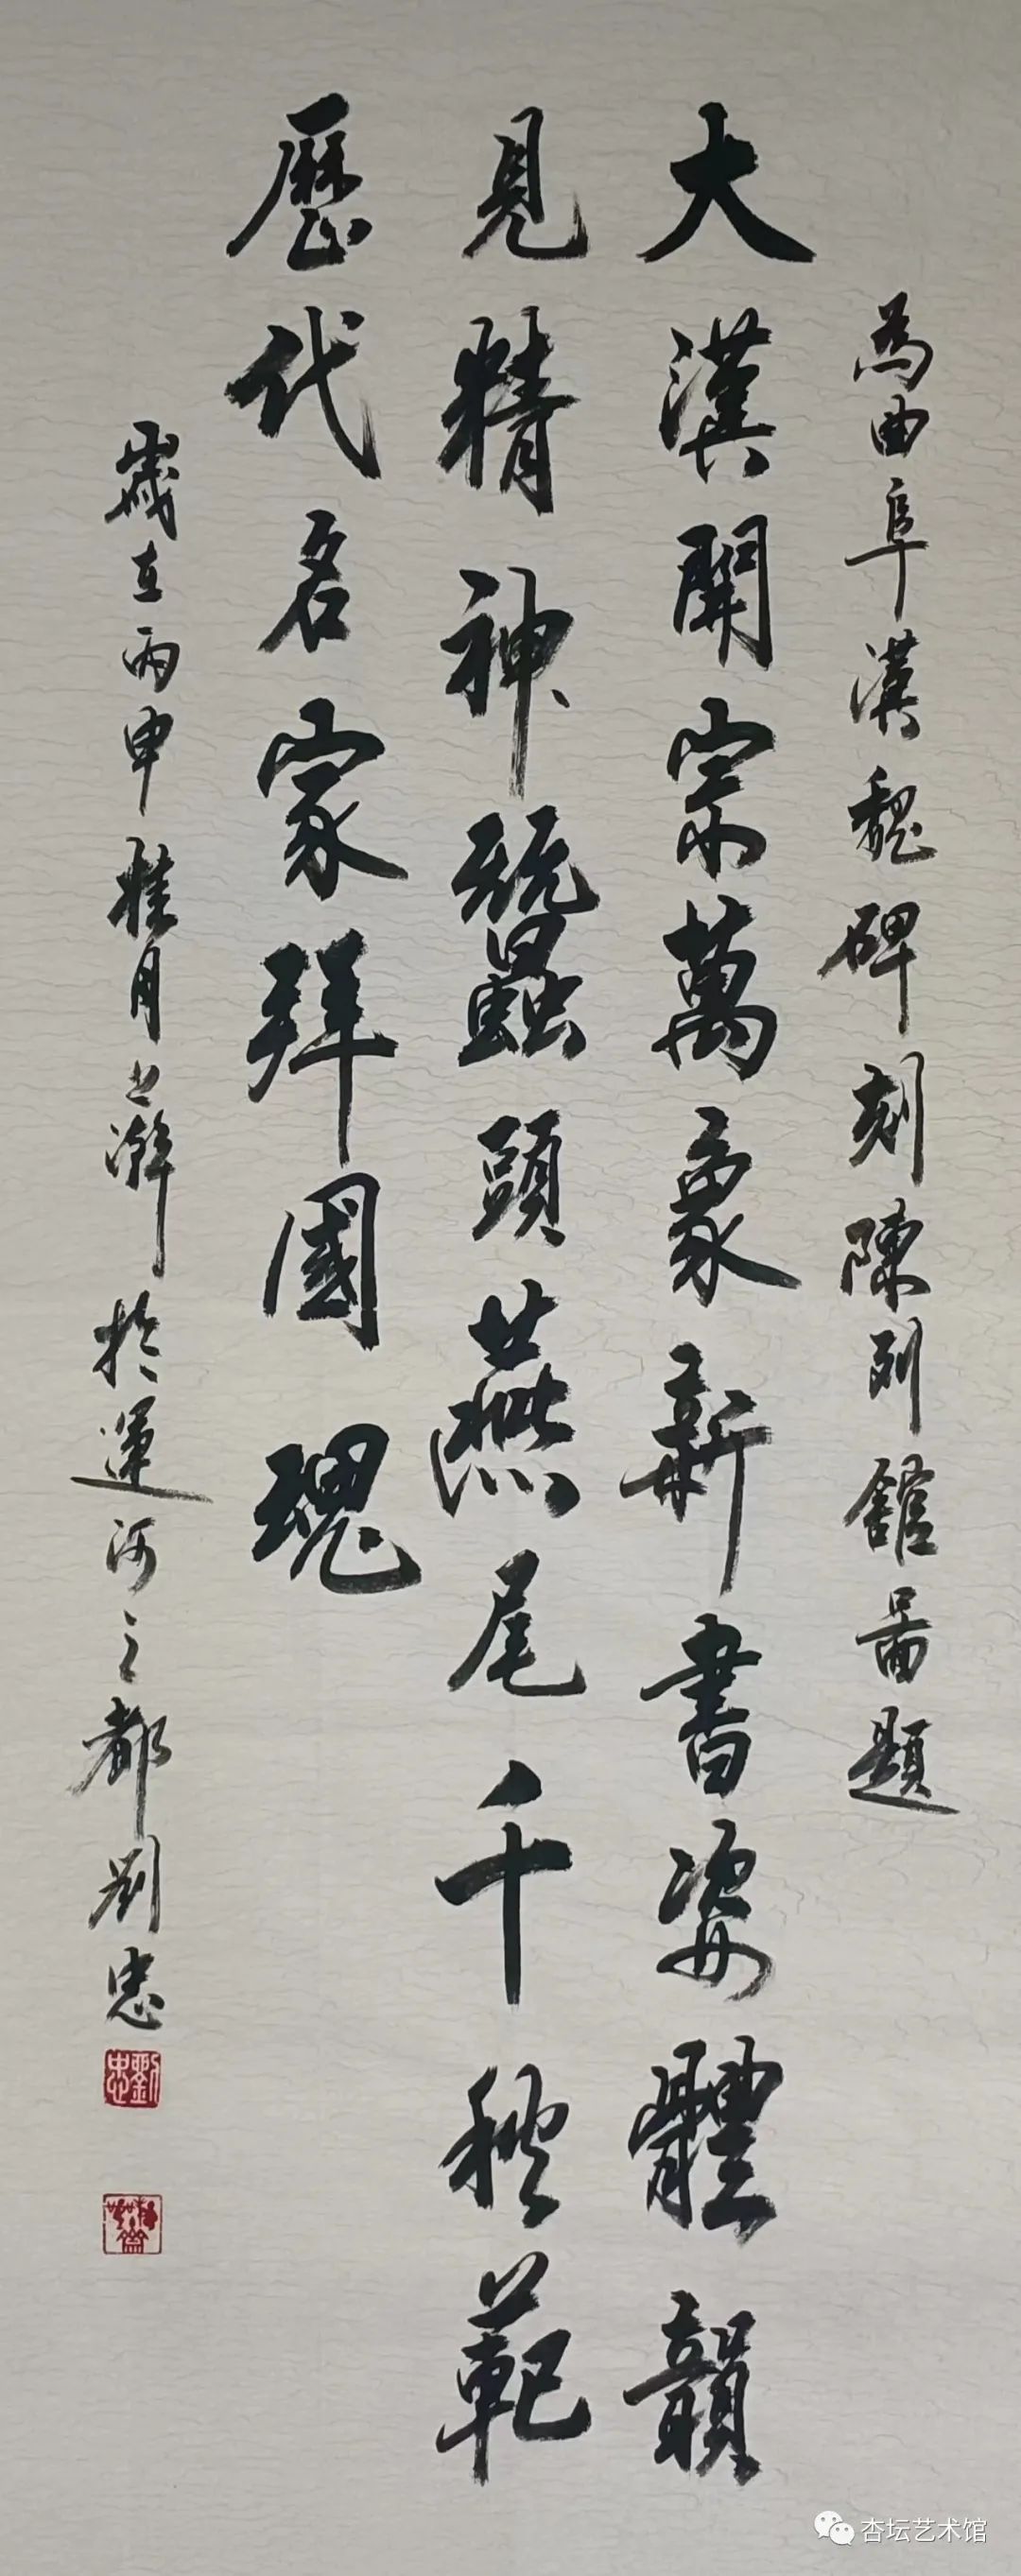 為曲阜漢魏碑刻陳列館啚題
大漢開宗萬象新書姿體韻
見精神蠶頭燕尾千秋範
歷代名家拜國瑰
歲在丙申桂月上澣於運河之都劉忠
劉忠
杏坛艺术馆